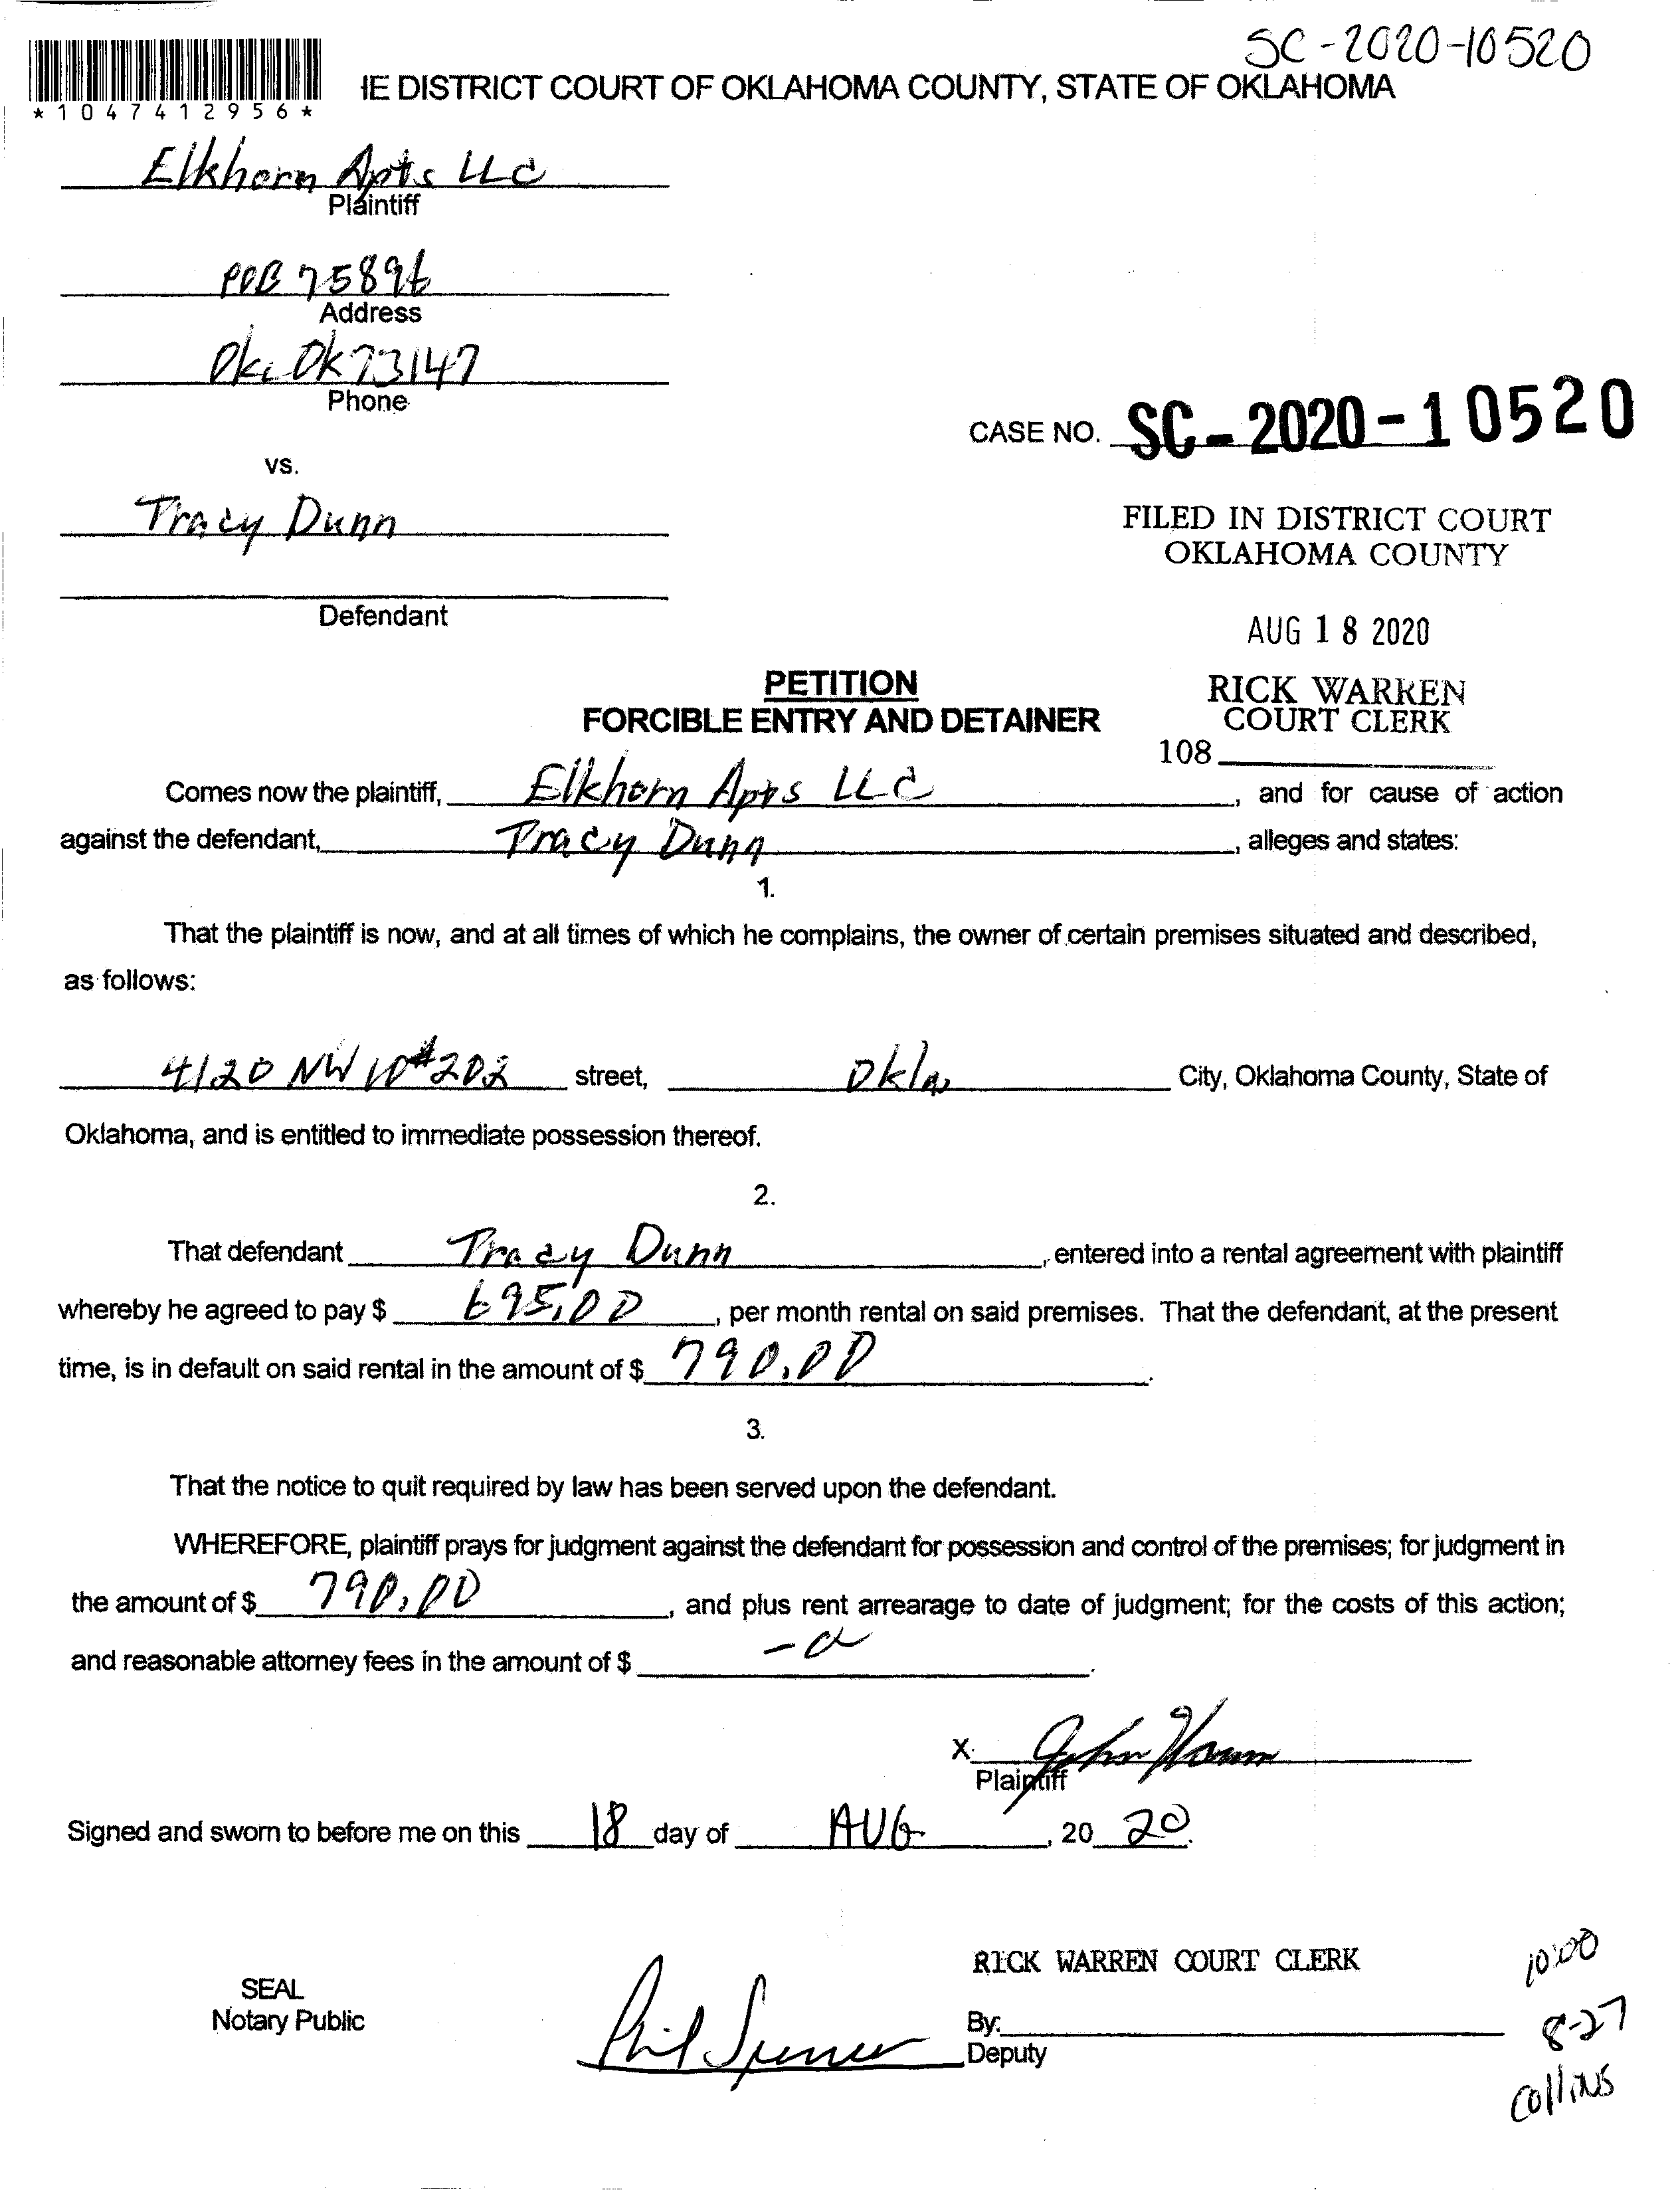 SC-2020-10520
*1047412956*
IE DISTRICT COURT OF OKLAHOMA COUNTY, STATE OF OKLAHOMA
Elkhorn Apts LLC
Plaintiff
POB 75896
Address
Okc Ok 73147
Phone
CASE NO. SC-2020-10520
vs.
Tracy Dunn
FILED IN DISTRICT COURT
OKLAHOMA COUNTY
Defendant
AUG 18 2020
PETITION
FORCIBLE ENTRY AND DETAINER
RICK WARREN
COURT CLERK
108
Comes now the plaintiff, Elkhorn Apts LLC, and for cause of action
against the defendant, Tracy Dunn, alleges and states:
1.
That the plaintiff is now, and at all times of which he complains, the owner of certain premises situated and described,
as follows:
4120 NW 10 #202 street, Okla City, Oklahoma County, State of
Oklahoma, and is entitled to immediate possession thereof.
2.
That defendant Tracy Dunn, entered into a rental agreement with plaintiff
whereby he agreed to pay $ 695.00, per month rental on said premises. That the defendant, at the present
time, is in default on said rental in the amount of $ 790.00.
3.
That the notice to quit required by law has been served upon the defendant.
WHEREFORE, plaintiff prays for judgment against the defendant for possession and control of the premises; for judgment in
the amount of $ 790.00, and plus rent arrearage to date of judgment; for the costs of this action;
and reasonable attorney fees in the amount of $
X
Plaintiff
Signed and sworn to before me on this 18 day of AUG, 20 20.
RICK WARREN COURT CLERK
10:00
SEAL
Notary Public
Phil Spencer
By:
Deputy
8-27
Collins